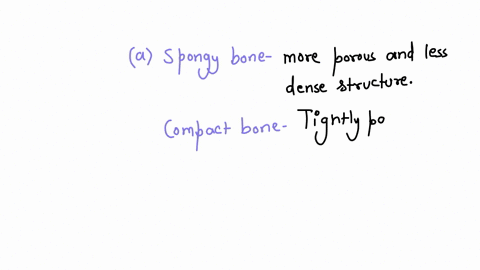 (a) Spongy bone- more porous and less
dense structure.
Compact bone- Tightly po